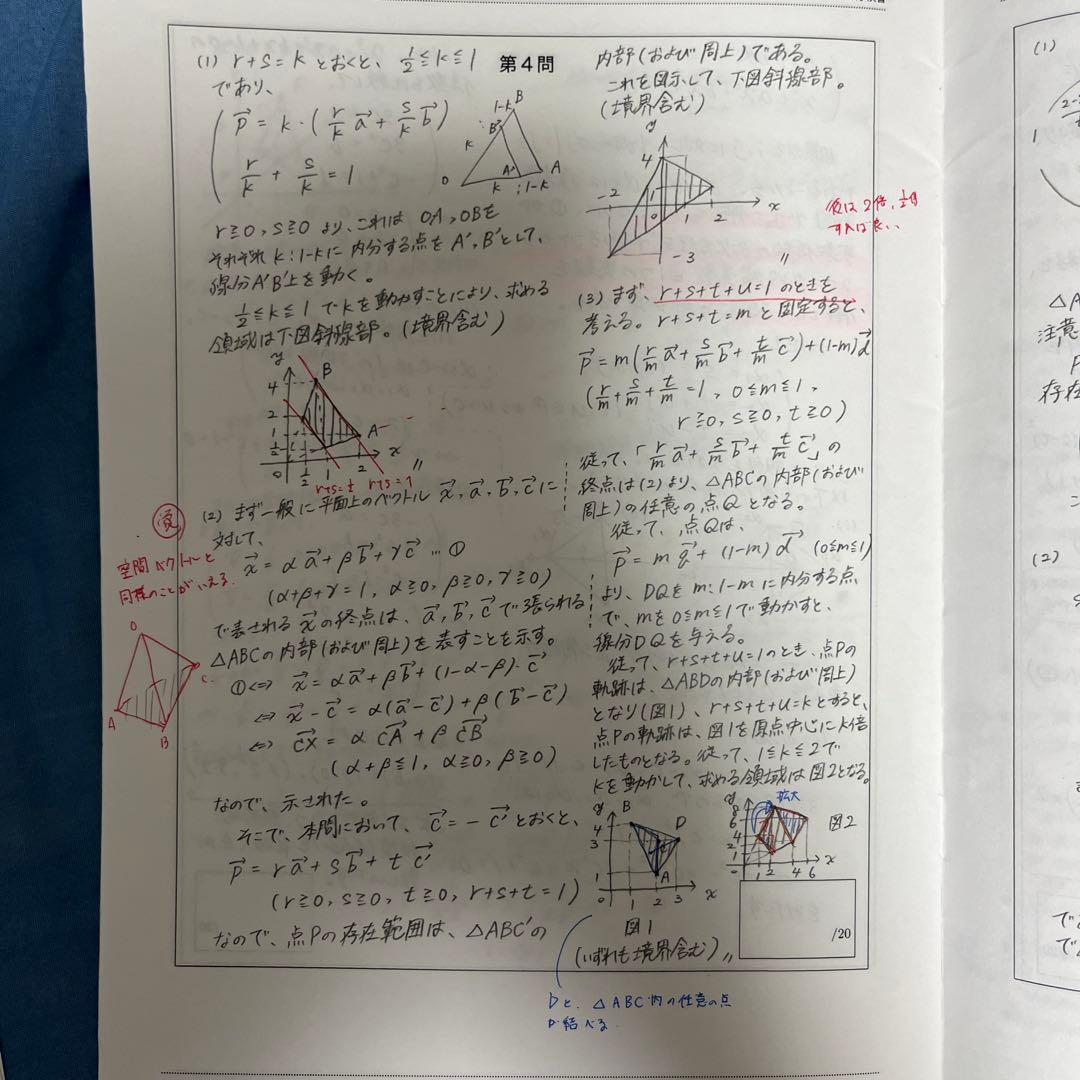 第4問
(1) r+s=k とおくと、1/2≦k≦1
であり、
p→ = k・(r/k a→ + s/k b→)
r/k + s/k = 1
B
1-k
B'
k
A'
A
O
k : 1-k
r≧0, s≧0 より、これは OA, OBを
それぞれ k:1-kに内分する点をA', B'として、
線分A'B'上を動く。
1/2≦k≦1 でkを動かすことにより、求める
領域は下図斜線部。(境界含む)
y
4
B
2
1
A
1/2
x
0
1/2
1
2
r+s=1/2
r+s=1
(2) まず一般に平面上のベクトル x→, a→, b→, c→に
対して、
x→ = αa→ + βb→ + γc→ …①
(α+β+γ=1, α≧0, β≧0, γ≧0)
で表される x→の終点は、a→, b→, c→で張られる
△ABCの内部(および周上)を表すことを示す。
①⇔ x→ = αa→+βb→+(1-α-β)・c→
⇔ x→-c→ = α(a→-c→)+β(b→-c→)
⇔ CX→ = α CA→ + β CB→
(α+β≦1, α≧0, β≧0)
なので、示された。
そこで、本問において、c'→=-c→とおくと、
p→ = ra→+sb→+t c'→
(r≧0, s≧0, t≧0, r+s+t=1)
なので、点Pの存在範囲は、△ABC'の
空間ベクトルと
同様のことがいえる.
O
A
B
C
内部(および周上)である。
これを図示して、下図斜線部。
(境界含む)
y
4
-2
1
0
1
2
x
-3
後は2倍、1/2倍
すれば良い.
(3) まず、r+s+t+u=1のときを
考える。r+s+t=mと固定すると、
p→=m(r/m a→+s/m b→+t/m c→)+(1-m)d→
(r/m+s/m+t/m=1, 0≦m≦1,
r≧0, s≧0, t≧0)
従って、「r/m a→+s/m b→+t/m c→」の
終点は(2)より、△ABCの内部(および
周上)の任意の点Qとなる。
従って、点Qは、
p→=m q→+(1-m)d→ (0≦m≦1)
より、DQをm:1-mに内分する点
で、mを0≦m≦1で動かすと、
線分DQを与える。
従って、r+s+t+u=1のとき、点Pの
軌跡は、△ABDの内部(および周上)
となり(図1)、r+s+t+u=kとすると、
点Pの軌跡は、図1を原点中心にk倍
したものとなる。従って、1≦k≦2で
kを動かして、求める領域は図2となる。
y
B
4
3
D
1
A
0
1
2
3
x
図1
拡大
y
8
6
4
2
1
0
1
2
4
6
x
図2
(いずれも境界含む)
/20
Dと、△ABC内の任意の点
が結べる.